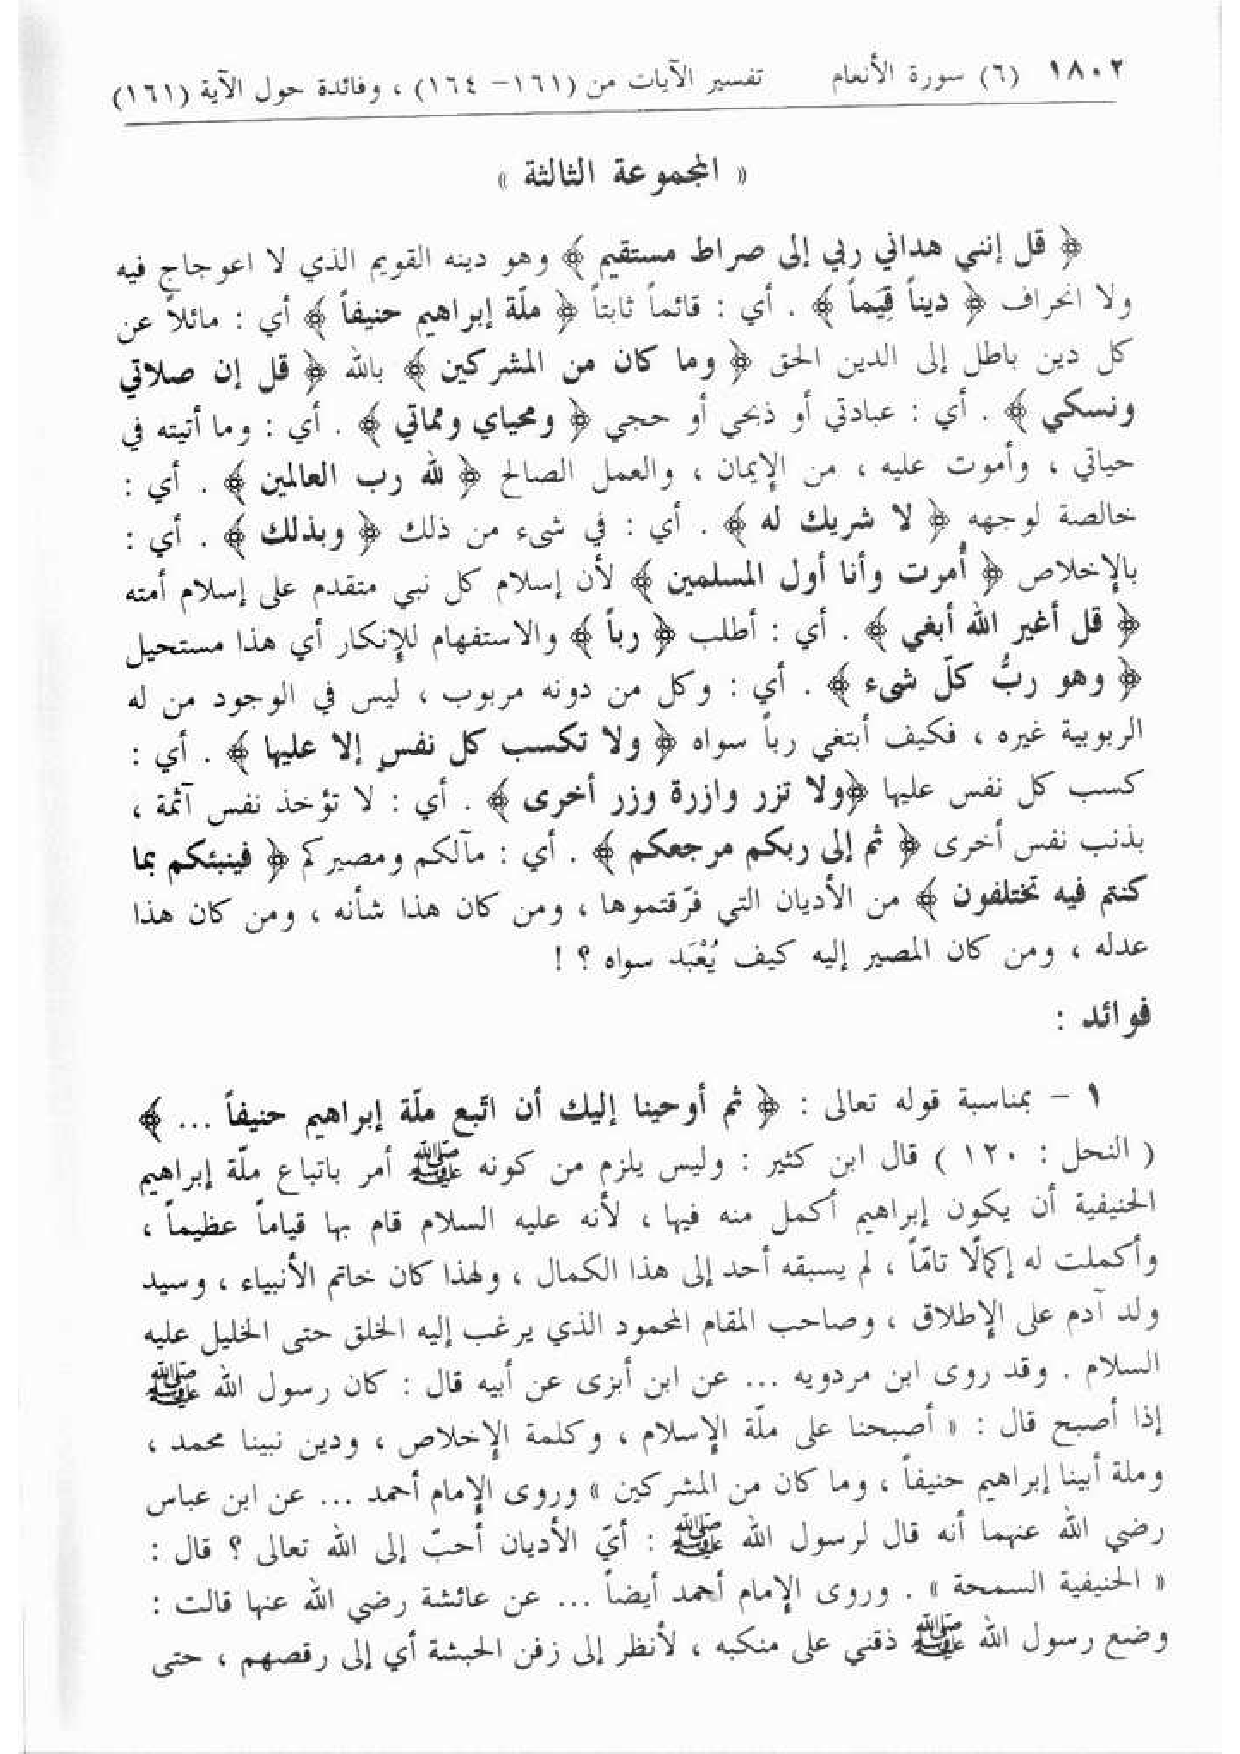 ١٨٠٢ (٦) سورة الأنعام تفسير الآيات من (١٦١ – ١٦٤) ، وفائدة حول الآية (١٦١)
« المجموعة الثالثة »
﴿ قل إنني هداني ربي إلى صراط مستقيم ﴾ وهو دينه القويم الذي لا اعوجاج فيه
ولا انحراف ﴿ ديناً قِيَماً ﴾ . أي : قائماً ثابتاً ﴿ ملّة إبراهيم حنيفاً ﴾ أي : مائلاً عن
كل دين باطل إلى الدين الحق ﴿ وما كان من المشركين ﴾ بالله ﴿ قل إن صلاتي
ونسكي ﴾ . أي : عبادتي أو ذبحي أو حجي ﴿ ومحياي ومماتي ﴾ . أي : وما أتيته في
حياتي ، وأموت عليه ، من الإيمان ، والعمل الصالح ﴿ لله رب العالمين ﴾ . أي :
خالصة لوجهه ﴿ لا شريك له ﴾ . أي : في شىء من ذلك ﴿ وبذلك ﴾ . أي :
بالإخلاص ﴿ أُمرت وأنا أول المسلمين ﴾ لأن إسلام كل نبي متقدم على إسلام أمته
﴿ قل أغير الله أبغي ﴾ . أي : أطلب ﴿ رباً ﴾ والاستفهام للإنكار أي هذا مستحيل
﴿ وهو ربُّ كلّ شىء ﴾ . أي : وكل من دونه مربوب ، ليس في الوجود من له
الربوبية غيره ، فكيف أبتغي رباً سواه ﴿ ولا تكسب كل نفسٍ إلا عليها ﴾ . أي :
كسب كل نفس عليها ﴿ولا تزر وازرة وزر أخرى ﴾ . أي : لا تؤخذ نفس آثمة ،
بذنب نفس أخرى ﴿ ثم إلى ربكم مرجعكم ﴾ . أي : مآلكم ومصيركم ﴿ فينبئكم بما
كنتم فيه تختلفون ﴾ من الأديان التي فرّقتموها ، ومن كان هذا شأنه ، ومن كان هذا
عدله ، ومن كان المصير إليه كيف يُعْبَد سواه ؟ !
فوائد :
١ – بمناسبة قوله تعالى : ﴿ ثم أوحينا إليك أن اتّبع ملّة إبراهيم حنيفاً ... ﴾
( النحل : ١٢٠ ) قال ابن كثير : وليس يلزم من كونه ﷺ أمر باتباع ملّة إبراهيم
الحنيفية أن يكون إبراهيم أكمل منه فيها ، لأنه عليه السلام قام بها قياماً عظيماً ،
وأكملت له إكمالًا تامّاً ، لم يسبقه أحد إلى هذا الكمال ، ولهذا كان خاتم الأنبياء ، وسيد
ولد آدم على الإطلاق ، وصاحب المقام المحمود الذي يرغب إليه الخلق حتى الخليل عليه
السلام . وقد روى ابن مردويه ... عن ابن أبزى عن أبيه قال : كان رسول الله ﷺ
إذا أصبح قال : « أصبحنا على ملّة الإسلام ، وكلمة الإخلاص ، ودين نبينا محمد ،
وملة أبينا إبراهيم حنيفاً ، وما كان من المشركين » وروى الإمام أحمد ... عن ابن عباس
رضي الله عنهما أنه قال لرسول الله ﷺ : أيّ الأديان أحبّ إلى الله تعالى ؟ قال :
« الحنيفية السمحة » . وروى الإمام أحمد أيضاً ... عن عائشة رضي الله عنها قالت :
وضع رسول الله ﷺ ذقني على منكبه ، لأنظر إلى زفن الحبشة أي إلى رقصهم ، حتى